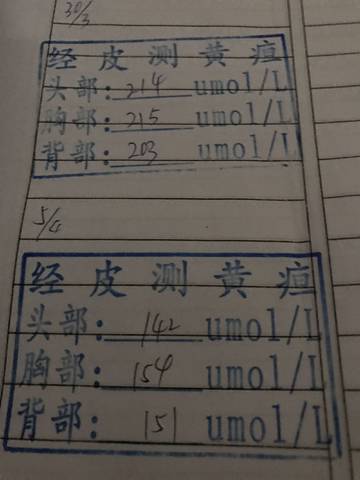 30/3
经皮测黄疸
头部:214umol/L
胸部:215umol/L
背部:203umol/L
5/4
经皮测黄疸
头部:142umol/L
胸部:154umol/L
背部:151umol/L